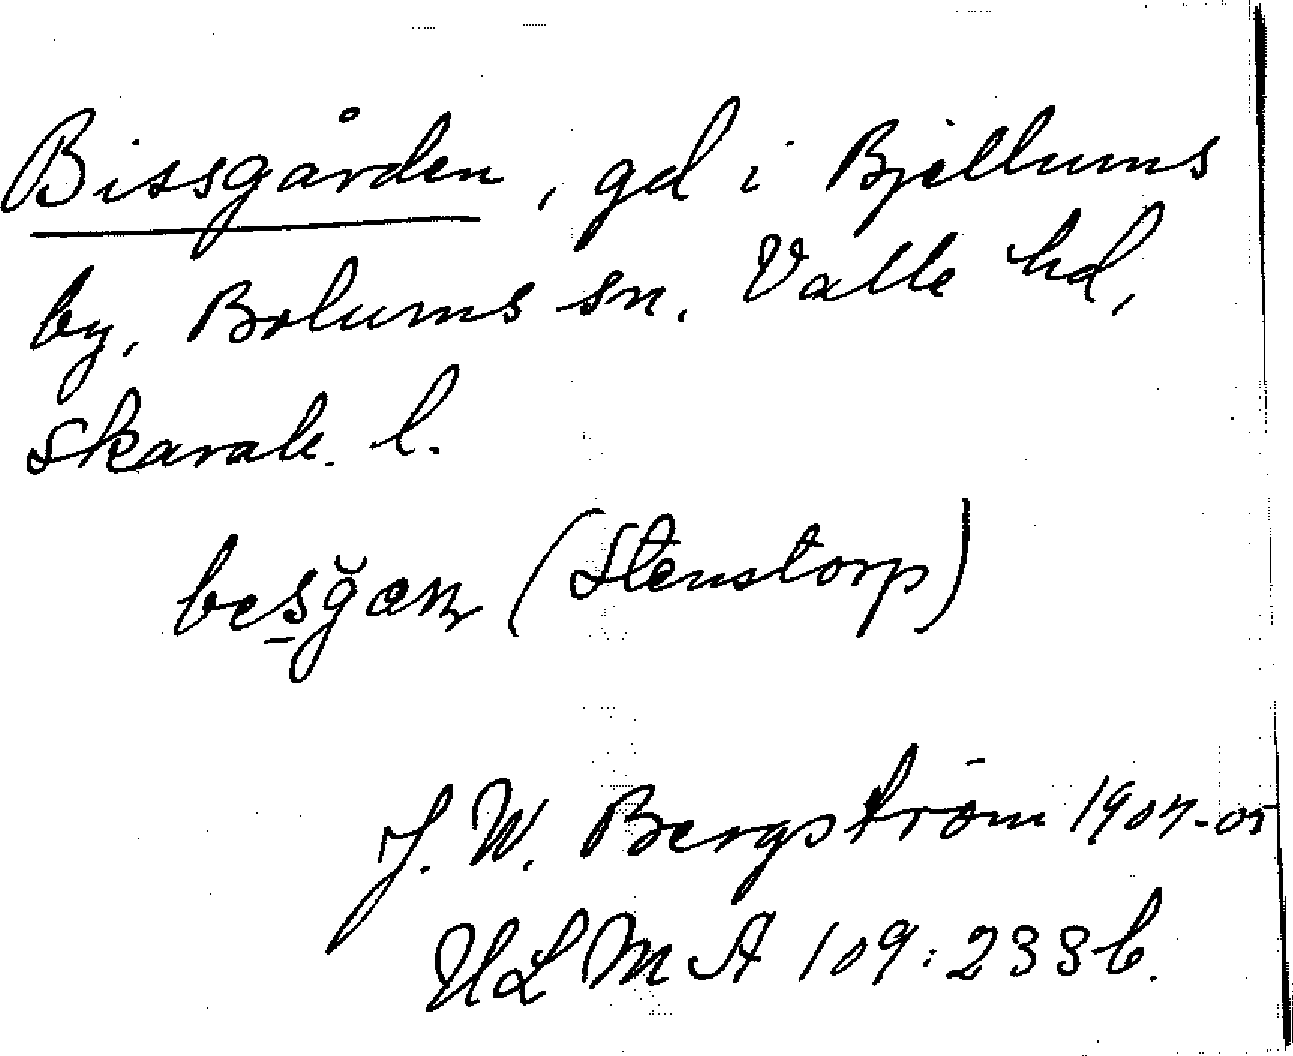 Bissgården, gd i Bjellums
by, Bolums sn. Valle hd,
Skarab. l.
(Stenstorp)
J. W. Bergström 1904-05
ULMA 109:233 b.